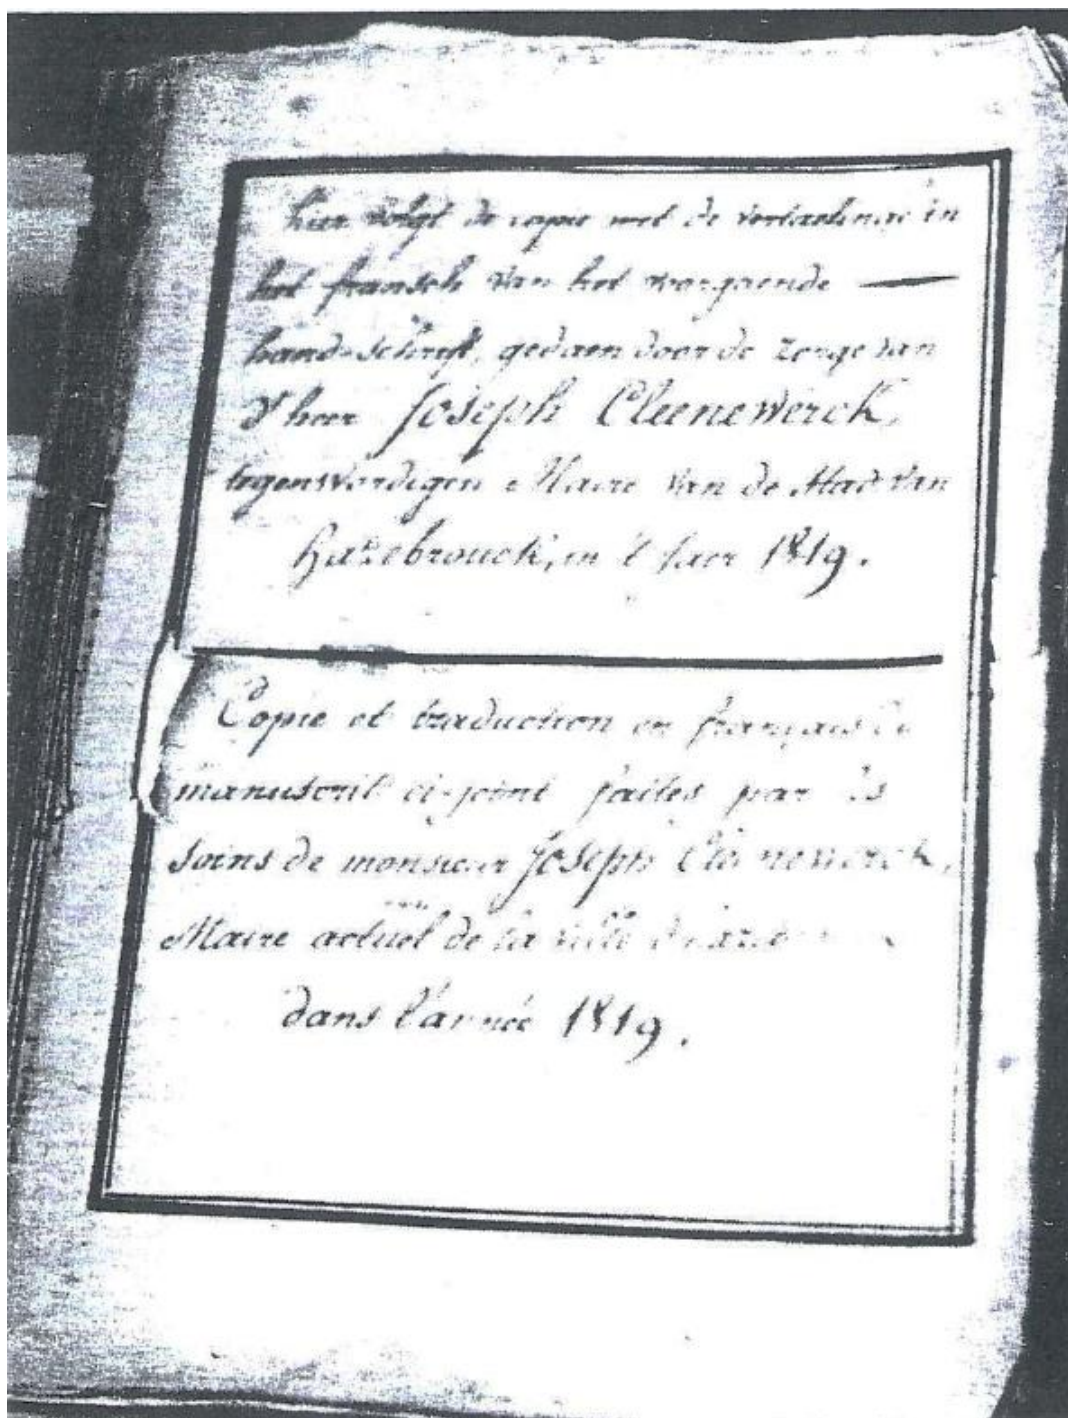 hier volgt de copie met de vertaelinge in
het fransch van het voorgaende
hand-schrift, gedaen door de zorge van
d'heer Joseph Cleenewerck,
tegenswordigen Maire van de stad van
Hazebrouck, in 't jaer 1819.
Copie et traduction en français
manuscrit ci-joint faites par les
soins de monsieur Joseph Cleenewerck,
Maire actuel de la ville
dans l'année 1819.